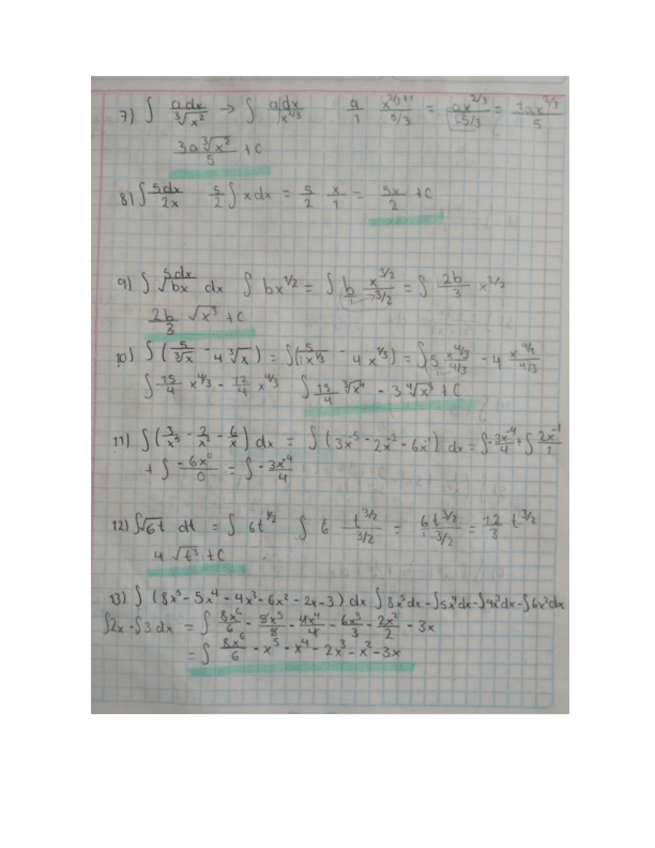 7) ∫ adx/∛x² → ∫ adx/x^2/3   a/1 x^2/3+1/5/3 = ax^2/3/5/3 = 3ax^2/3/5
3a∛x²/5 + C
8) ∫ 5dx/2x   5/2 ∫ x dx = 5/2 x/1 = 5x/2 + C
9) ∫ 5dx/√bx dx   ∫ bx^1/2 = ∫ b x^3/2/3/2 = ∫ 2b/3 x^3/2
2b/3 √x³ + C
10) ∫ (5/∛x - 4∛x) = ∫(5/1x^1/3 - 4x^1/3) = ∫ 5 x^4/3/4/3 - 4 x^4/3/4/3
∫ 15/4 x^4/3 - 12/4 x^4/3   ∫ 15/4 ∛x⁴ - 3∜x³ + C
11) ∫ (3/x⁵ - 2/x² - 6/x) dx = ∫ (3x⁻⁵ - 2x⁻² - 6x⁻¹) dx = ∫ -3x⁻⁴/4 + ∫ 2x⁻¹/1
+ ∫ -6x⁰/0 = ∫ -3x⁻⁴/4
12) ∫√6t dt = ∫ 6t^1/2   ∫ 6 t^3/2/3/2 = 6t^3/2/3/2 = 12/3 t^3/2
4 √t³ + C
13) ∫ (8x⁵ - 5x⁴ - 4x³ - 6x² - 2x - 3) dx ∫8x⁵dx - ∫5x⁴dx - ∫4x³dx - ∫6x²dx
∫2x - ∫3dx = ∫ 8x⁶/6 - 5x⁵/5 - 4x⁴/4 - 6x³/3 - 2x²/2 - 3x
= ∫ 8x⁶/6 - x⁵ - x⁴ - 2x³ - x² - 3x